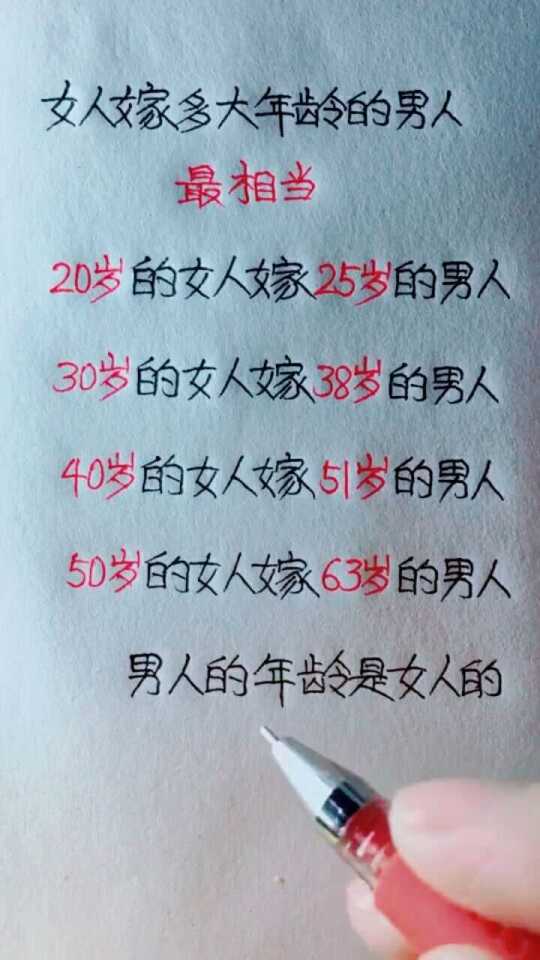 女人嫁多大年龄的男人
最相当
20岁的女人嫁25岁的男人
30岁的女人嫁38岁的男人
40岁的女人嫁51岁的男人
50岁的女人嫁63岁的男人
男人的年龄是女人的